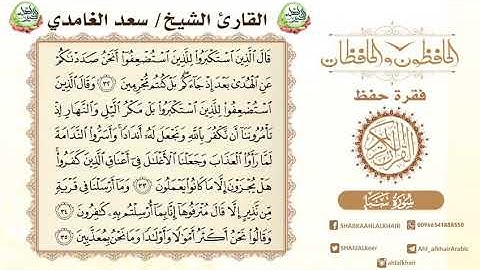 القارئ الشيخ/ سعد الغامدي
قَالَ ٱلَّذِينَ ٱسْتَكْبَرُوا۟ لِلَّذِينَ ٱسْتُضْعِفُوٓا۟ أَنَحْنُ صَدَدْنَٰكُمْ
عَنِ ٱلْهُدَىٰ بَعْدَ إِذْ جَآءَكُم بَلْ كُنتُم مُّجْرِمِينَ ٣٢ وَقَالَ ٱلَّذِينَ
ٱسْتُضْعِفُوا۟ لِلَّذِينَ ٱسْتَكْبَرُوا۟ بَلْ مَكْرُ ٱلَّيْلِ وَٱلنَّهَارِ إِذْ
تَأْمُرُونَنَآ أَن نَّكْفُرَ بِٱللَّهِ وَنَجْعَلَ لَهُۥٓ أَندَادًا وَأَسَرُّوا۟ ٱلنَّدَامَةَ
لَمَّا رَأَوُا۟ ٱلْعَذَابَ وَجَعَلْنَا ٱلْأَغْلَٰلَ فِىٓ أَعْنَاقِ ٱلَّذِينَ كَفَرُوا۟
هَلْ يُجْزَوْنَ إِلَّا مَا كَانُوا۟ يَعْمَلُونَ ٣٣ وَمَآ أَرْسَلْنَا فِى قَرْيَةٍ
مِّن نَّذِيرٍ إِلَّا قَالَ مُتْرَفُوهَآ إِنَّا بِمَآ أُرْسِلْتُم بِهِۦ كَٰفِرُونَ ٣٤
وَقَالُوا۟ نَحْنُ أَكْثَرُ أَمْوَٰلًا وَأَوْلَٰدًا وَمَا نَحْنُ بِمُعَذَّبِينَ ٣٥
الحافظون والحافظات
فقرة حفظ
القرآن الكريم
سورة سبإ
SHABKAAHLALKHAIR
00966541888550
SHAIJALKeer
Ahl_alkhairArabic
ahlalkhair